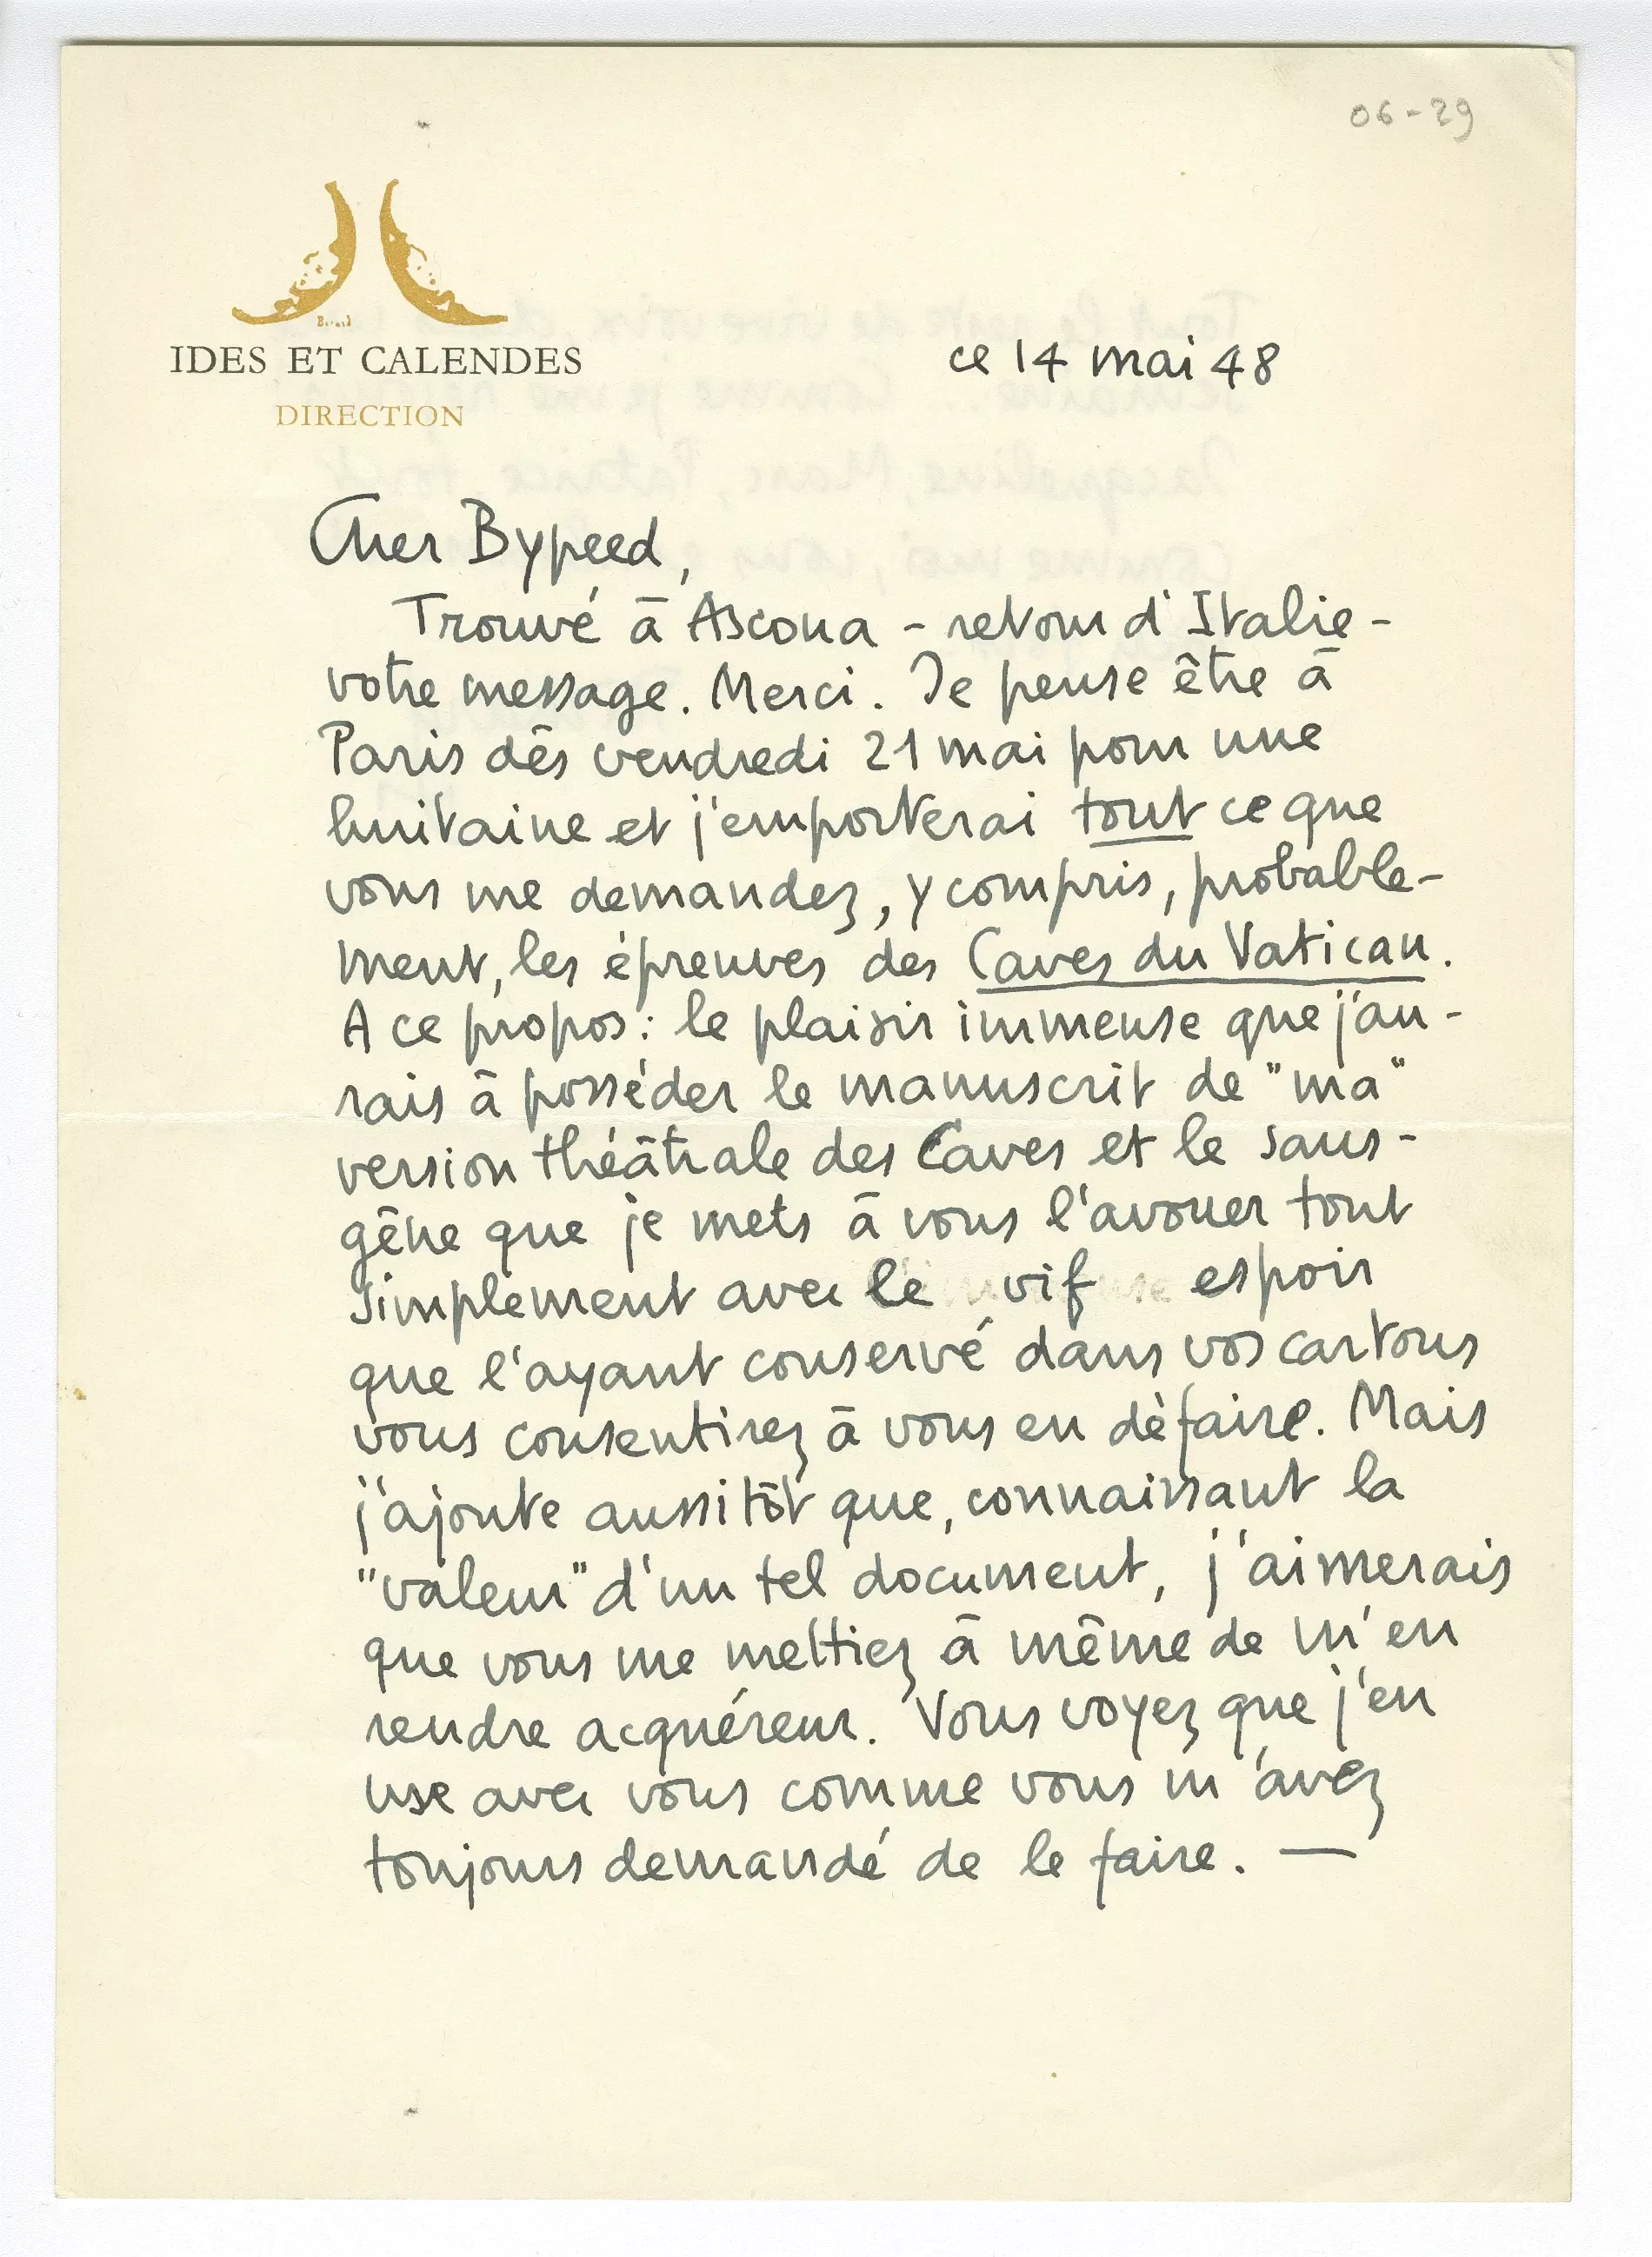 06-29
IDES ET CALENDES
DIRECTION
ce 14 mai 48
Cher Bypeed,
Trouvé à Ascona - retour d'Italie -
votre message. Merci. Je pense être à
Paris dès vendredi 21 mai pour une
huitaine et j'emporterai tout ce que
vous me demandez, y compris, probable-
ment, les épreuves des Caves du Vatican.
A ce propos : le plaisir immense que j'au-
rais à posséder le manuscrit de "ma"
version théâtrale des Caves et le sans-
gêne que je mets à vous l'avouer tout
simplement avec le vif espoir
que l'ayant conservé dans vos cartons
vous consentirez à vous en défaire. Mais
j'ajoute aussitôt que, connaissant la
"valeur" d'un tel document, j'aimerais
que vous me mettiez à même de m'en
rendre acquéreur. Vous voyez que j'en
use avec vous comme vous m'avez
toujours demandé de le faire. —